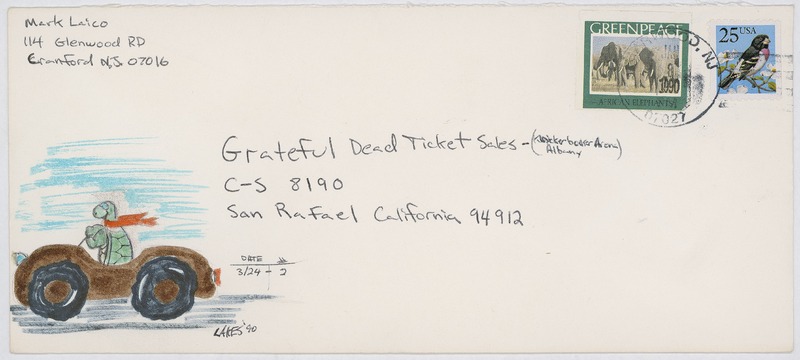 Mark Laico
114 Glenwood RD
Cranford N.J. 07016
GREENPEACE
1990
AFRICAN ELEPHANTS
25 USA
WOOD, NJ
07027
Grateful Dead Ticket Sales - (Knickerbocker Arena)
Albany
C-S 8190
San Rafael California 94912
DATE #
3/24 - 2
LAKES '90